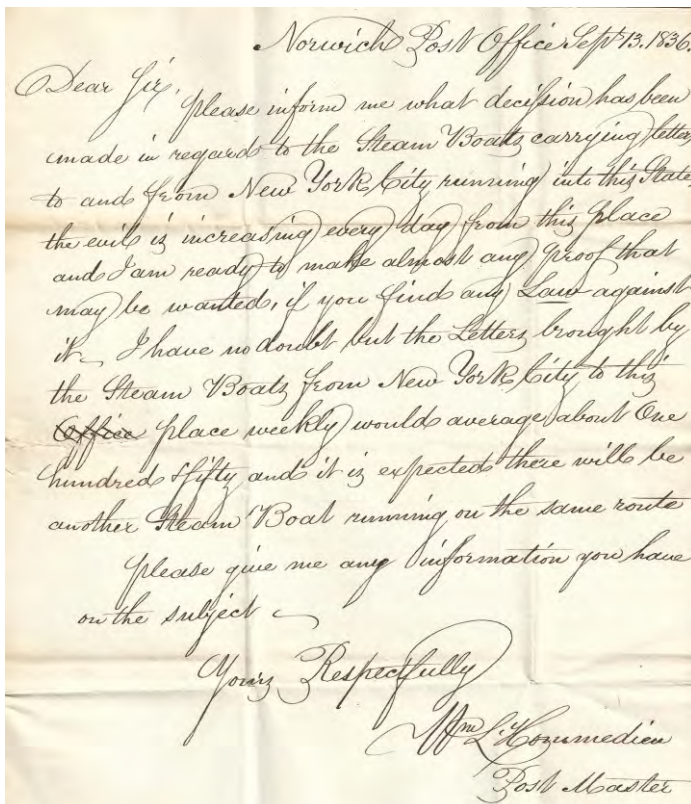 Norwich Post Office Sept 13. 1836.
Dear Sir,
please inform me what decission has been
made in regard to the Steam Boats carrying letters
to and from New York City running into this State
the evil is increasing every day from this place
and I am ready to make almost any proof that
may be wanted, if you find any Law against
it I have no doubt but the Letters brought by
the Steam Boats from New York City to this
Office place weekly would average about One
hundred & fifty and it is expected there will be
another Steam Boat running on the same route
please give me any information you have
on the subject
Yours Respectfully
Wm L'Hommedieu
Post Master